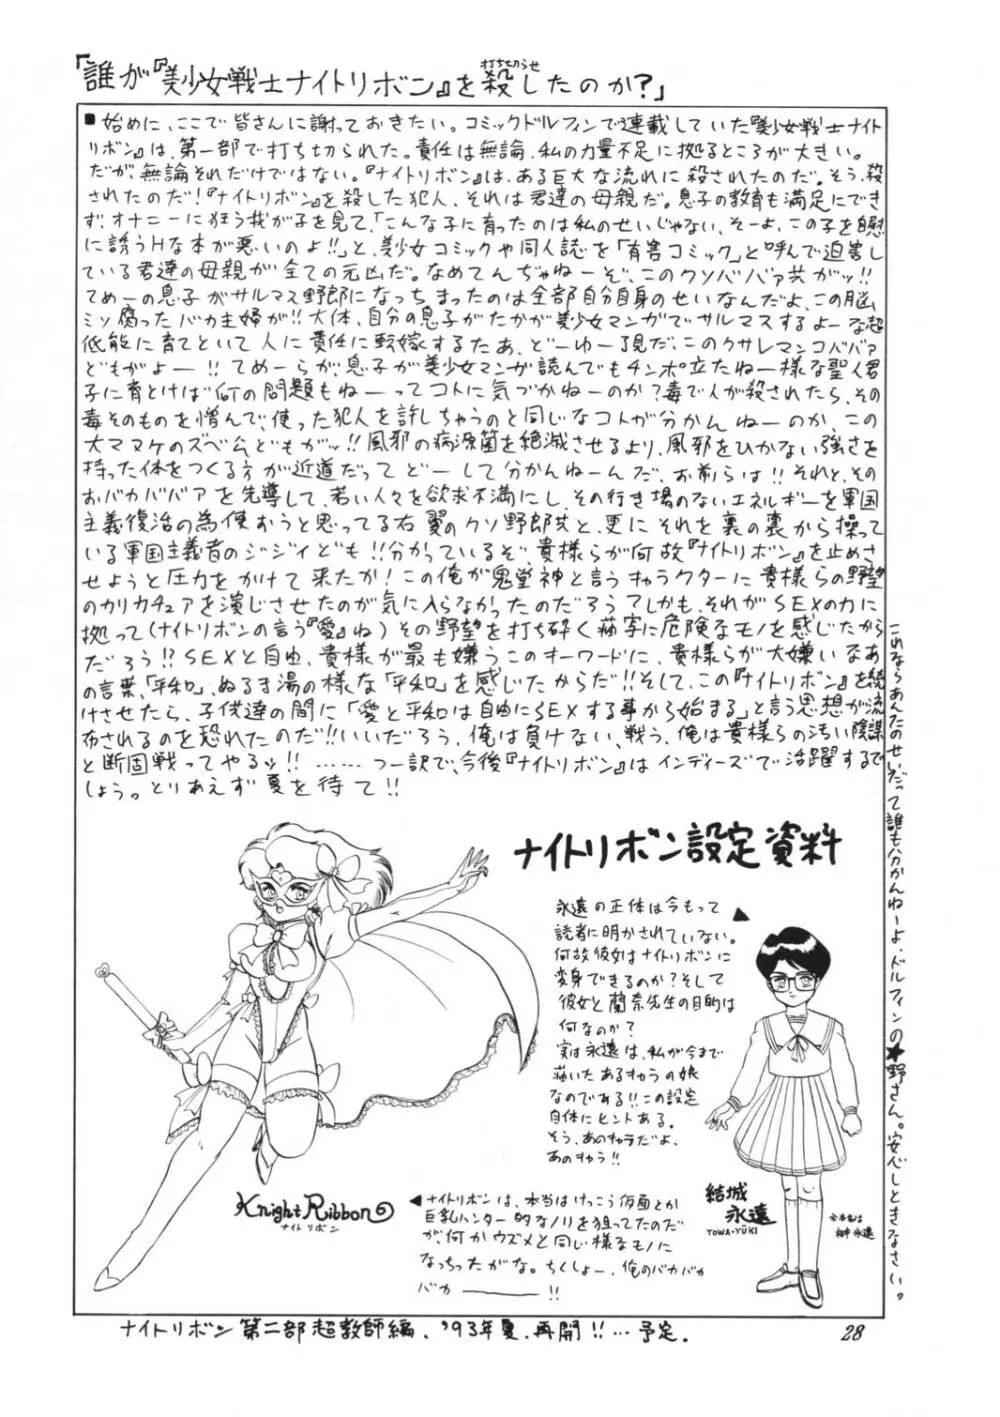 打ち切らせ
「誰が『美少女戦士ナイトリボン』を殺したのか?」
■始めに、ここで皆さんに謝っておきたい。コミックドルフィンで連載していた『美少女戦士ナイト
リボン』は、第一部で打ち切られた。責任は無論、私の力量不足に拠るところが大きい。
だが、無論それだけではない。『ナイトリボン』は、ある巨大な流れに殺されたのだ。そう、殺
されたのだ!『ナイトリボン』を殺した犯人、それは君達の母親だ。息子の教育も満足にでき
ず、オナニーに狂う我が子を見て、「こんな子に育ったのは私のせいじゃない、そーよ、この子を自慰
に誘うHな本が悪いのよ!!」と、美少女コミックや同人誌を「有害コミック」と呼んで迫害し
ている君達の母親が全ての元凶だ。なめてんぢゃねーぞ、このクソババァ共がッ!!
てめーの息子がサルマス野郎になっちまったのは全部自分自身のせいなんだよ、この脳
ミソ腐ったバカ主婦が!!大体、自分の息子がたかが美少女マンガでサルマスするよーな超
低能に育てといて人に責任に転嫁するたあ、どーゆー了見だ、このクサレマンコババァ
どもがよー!!てめーらが、息子が美少女マンガ読んでもチンポ立たねー様な聖人君
子に育とけば何の問題もねーーってコトに気づかねーのか?毒で人が殺されたら、その
毒そのものを憎んで、使った犯人を許しちゃうのと同じなコトが分かんねーのか、この
大マヌケのズベ公どもがッ!!風邪の病源菌を絶滅させるより、風邪をひかない強さを
持った体をつくる方が近道だってどーして分かんねーんだ、お前らは!!それと、その
おバカババアを先導して、若い人々を欲求不満にし、その行き場のないエネルギーを軍国
主義復活の為使おうと思ってる右翼のクソ野郎共と、更にそれを裏の裏から操って
いる軍国主義者のジジイども!!分かっているぞ、貴様らが何故『ナイトリボン』を止めさ
せようと圧力をかけて来たか!この俺が鬼堂神と言うキャラクターに貴様らの野望
のカリカチュアを演じさせたのが気に入らなかったのだろう?しかも、それがSEXの力に
拠って(ナイトリボンの言う『愛』ね)その野望を打ち砕く描写に危険なモノを感じたから
だろう!?SEXと自由、貴様が最も嫌うこのキーワードに、貴様らが大嫌いなあ
の言葉、「平和」、ぬるま湯の様な「平和」を感じたからだ!!そして、この『ナイトリボン』を続
けさせたら、子供達の間に「愛と平和は自由にSEXする事から始まる」と言う思想が流
布されるのを恐れたのだ!!いいだろう、俺は負けない、戦う、俺は貴様らの汚い陰謀
と断固戦ってやるッ!!……つー訳で、今後『ナイトリボン』はインディーズで活躍するで
しょう。とりあえず夏を待て!!
これならあんたのせいだって誰も分かんねーよ、ドルフィンの★野さん。安心しときなさい。
ナイトリボン設定資料
永遠の正体は今もって
読者に明かされていない。
何故彼女はナイトリボンに
変身できるのか?そして
彼女と蘭奈先生の目的は
何なのか?
実は永遠は、私が今まで
描いたあるキャラの娘
なのである!!この設定
自体にヒントある。
そう、あのキャラだよ、
あのキャラ!!
結城
永遠
TOWA・YUKI
Knight Ribbon
ナイトリボン
◀ナイトリボンは、本当はけっこう仮面とか
巨乳ハンター的なノリを狙ってたのだ
が、何かウズメと同じ様なモノに
なっちったがな。ちくしょー、俺のバカバカ
バカ――――!!
ナイトリボン第二部超教師編、'93年夏、再開!!…予定。
28